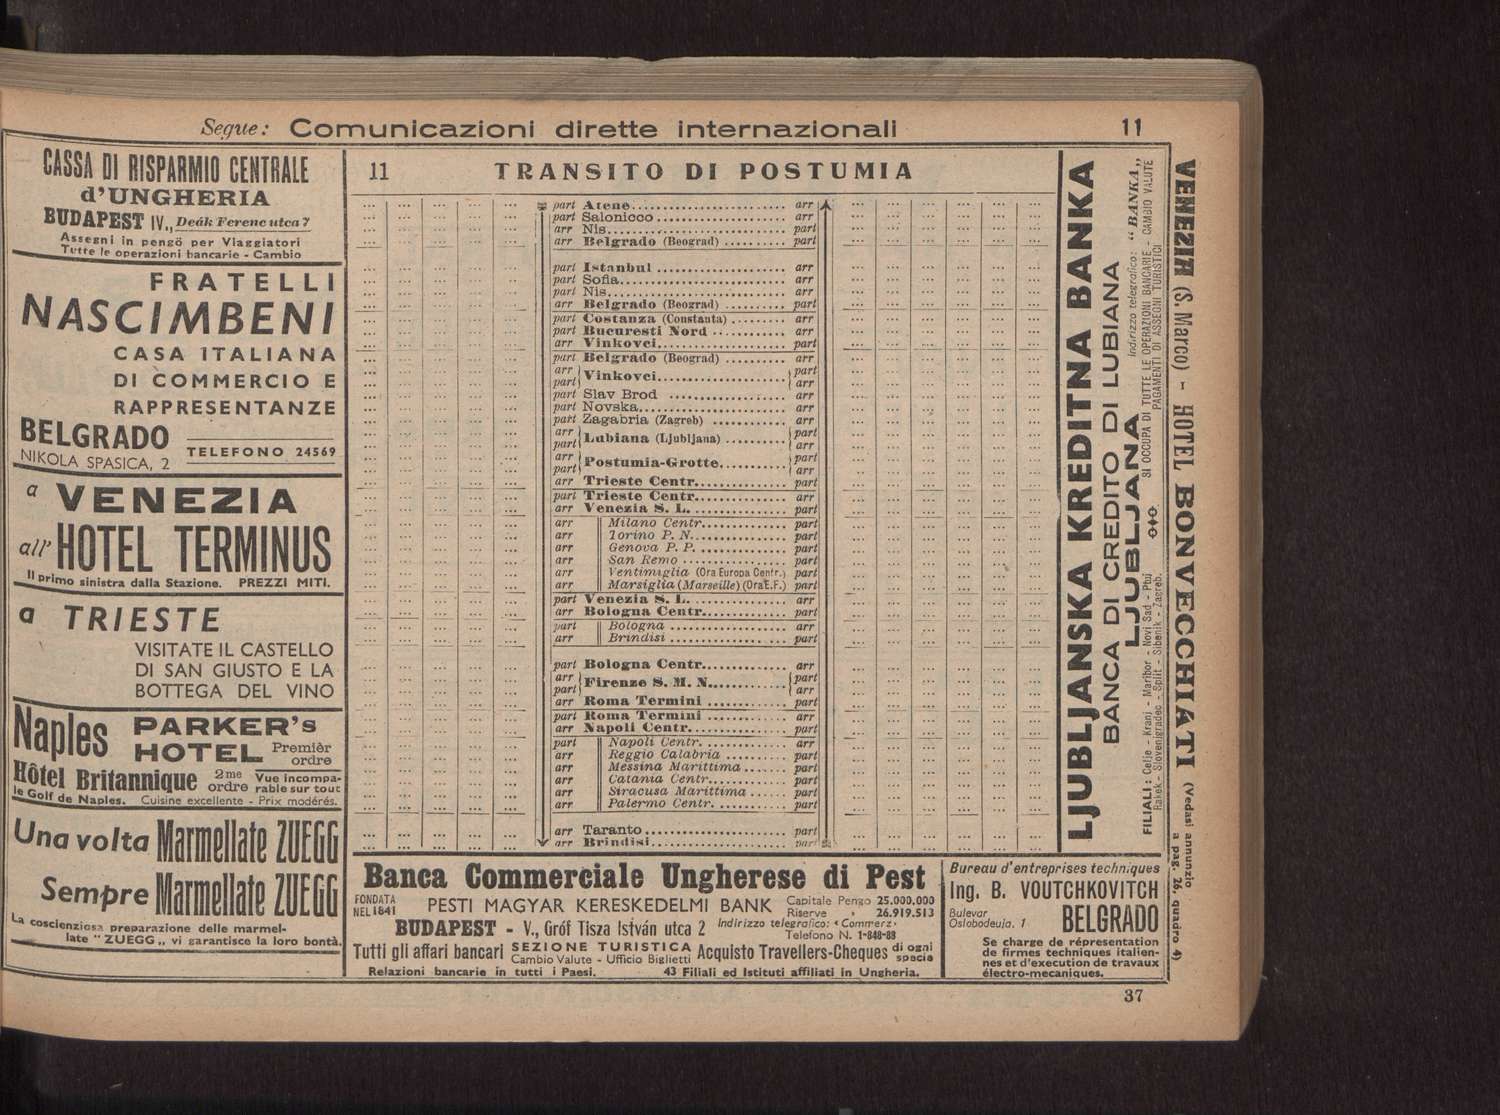 Segue: Comunicazioni dirette internazionali 11
CASSA DI RISPARMIO CENTRALE
d'UNGHERIA
BUDAPEST IV., Deák Ferenc utca 7
Assegni in pengö per Viaggiatori
Tutte le operazioni bancarie - Cambio
FRATELLI
NASCIMBENI
CASA ITALIANA
DI COMMERCIO E
RAPPRESENTANZE
BELGRADO
NIKOLA SPASICA, 2
TELEFONO 24569
a VENEZIA
all' HOTEL TERMINUS
Il primo sinistra dalla Stazione. PREZZI MITI.
a TRIESTE
VISITATE IL CASTELLO
DI SAN GIUSTO E LA
BOTTEGA DEL VINO
Naples PARKER's
HOTEL Premièr
ordre
Hôtel Britannique 2me ordre Vue incompa-
rable sur tout
le Golf de Naples. Cuisine excellente - Prix modérés.
Una volta Marmellate ZUEGG
Sempre Marmellate ZUEGG
La coscienziosa preparazione delle marmel-
late "ZUEGG„ vi garantisce la loro bontà.
11 TRANSITO DI POSTUMIA
part Atene arr
part Salonicco arr
arr Nis part
arr Belgrado (Beograd) part
part Istanbul arr
part Sofia arr
part Nis arr
arr Belgrado (Beograd) part
part Costanza (Constanta) arr
part Bucuresti Nord arr
arr Vinkovci part
part Belgrado (Beograd) arr
arr part Vinkovci part arr
part Slav Brod arr
part Novska arr
part Zagabria (Zagreb) arr
arr part Lubiana (Ljubljana) part arr
arr part Postumia-Grotte part arr
arr Trieste Centr. part
part Trieste Centr. arr
arr Venezia S. L. part
arr Milano Centr. part
arr Torino P. N. part
arr Genova P. P. part
arr San Remo part
arr Ventimiglia (Ora Europa Centr.) part
arr Marsiglia (Marseille) (Ora E.F.) part
part Venezia S. L. arr
arr Bologna Centr. part
part Bologna arr
arr Brindisi part
part Bologna Centr. arr
arr part Firenze S. M. N. part arr
arr Roma Termini part
part Roma Termini arr
arr Napoli Centr. part
part Napoli Centr. arr
arr Reggio Calabria part
arr Messina Marittima part
arr Catania Centr. part
arr Siracusa Marittima part
arr Palermo Centr. part
arr Taranto part
arr Brindisi part
LJUBLJANSKA KREDITNA BANKA
BANCA DI CREDITO DI LUBIANA
LJUBLJANA
Indirizzo telegrafico: "BANKA„
SI OCCUPA DI TUTTE LE OPERAZIONI BANCARIE - CAMBIO VALUTE
PAGAMENTI DI ASSEGNI TURISTICI
FILIALI: Celje - Kranj - Maribor - Novi Sad - Ptuj
Rakek - Slovenjgradec - Split - Sibenik - Zagreb.
VENEZIA (S. Marco) - HOTEL BONVECCHIATI (Vedasi annunzio
a pag. 26, quadro 4)
Banca Commerciale Ungherese di Pest
FONDATA
NEL 1841
PESTI MAGYAR KERESKEDELMI BANK
Capitale Pengo 25.000.000
Riserve » 26.919.513
BUDAPEST - V., Gróf Tisza István utca 2
Indirizzo telegrafico: «Commerz»
Telefono N. 1-848-88
Tutti gli affari bancari SEZIONE TURISTICA
Cambio Valute - Ufficio Biglietti
Acquisto Travellers-Cheques di ogni
specie
Relazioni bancarie in tutti i Paesi. 43 Filiali ed Istituti affiliati in Ungheria.
Bureau d'entreprises techniques
Ing. B. VOUTCHKOVITCH
Bulevar
Oslobodeuja, 1
BELGRADO
Se charge de répresentation
de firmes techniques italien-
nes et d'execution de travaux
électro-mecaniques.
37